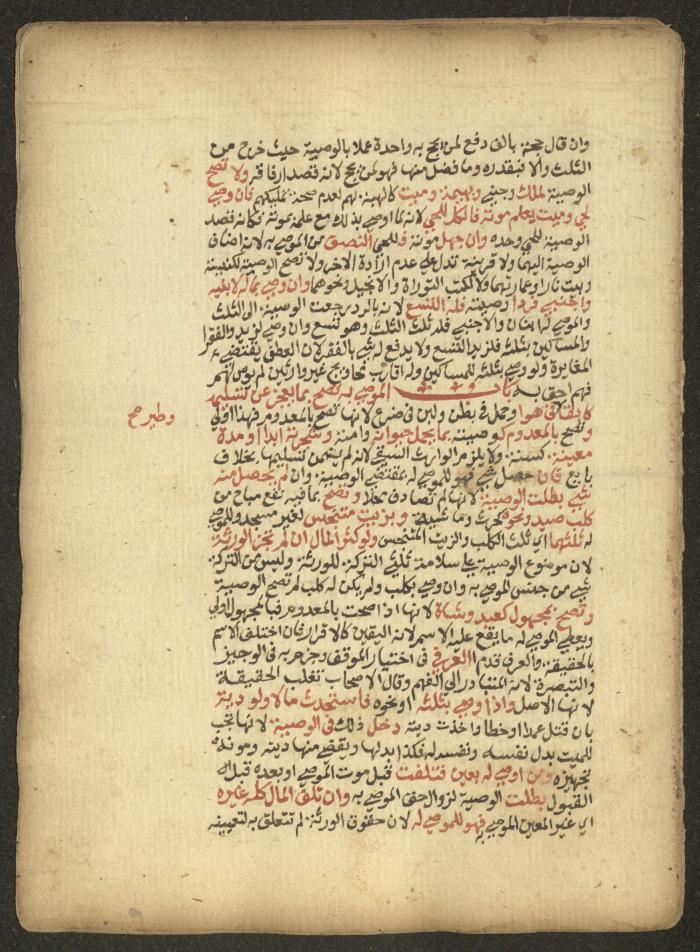 وان قال حجة بالف دفع لمن يحج به واحدة عملا بالوصية حيث خرج من
الثلث والا فبقدره وما فضل منها فهو لمن يحج لانه قصد ارفاقه ولا تصح
الوصية لملك وجني وبهيمة وميت كالهبة لهم لعدم صحة تمليكهم فان وصي
لحي وميت يعلم موته فالكل للحي لانه لما اوصي بذلك مع علمه بموته فكانه قصد
الوصية للحي وحده وان جهل موته فللحي النصف من الموصي به لانه اضاف
الوصية اليهما ولا قرينة تدل علي عدم ارادة الاخر ولا تصح الوصية لكنيسة
وبيت نار او عمارتهما ولا لكتب التوراة والانجيل ونحوهما وان وصي بماله لابنيه
واجنبي فردا وصيته فله التسع لانه بالرد رجعت الوصية الي الثلث
والموصي له ابنان والاجنبي فله ثلث الثلث وهو تسع وان وصي لزيد والفقرا
والمساكين بثلثه فلزيد التسع ولا يدفع له شي بالفقر لان العطف يقتضي
المغايرة ولو وصي بثلثه للمساكين وله اقارب محاويج غير وارثين لم يوص لهم
فهم احق به باب الموصي به تصح بما يعجز عن تسليمه
كابق في هوا وحمل في بطن ولبن في ضرع لانها تصح بالمعدوم فهذا اولي
وطير صح
وتصح بالمعدوم كوصيته بما يحمل حيوانه وامته وشجرته ابدا او مدة
معينة كسنة ولا يلزم الوارث السقي لانه لم يضمن تسليمها بخلاف
بايع فان حصل شي فهو للموصي له بمقتضي الوصية وان لم يحصل منه
شي بطلت الوصية لانها لم تصادف محلا وتصح بما فيه نفع مباح من
كلب صيد ونحوه كحرث وماشية وبزيت متنجس لغير مسجد وللموصي
له ثلثهما اي ثلث الكلب والزيت المتنجس ولو كثر المال ان لم تجز الورثة
لان موضوع الوصية علي سلامة ثلثي التركة للورثة وليس من التركة
شي من جنس الموصي به وان وصي بكلب ولم يكن له كلب لم تصح الوصية
وتصح بمجهول كعبد وشاة لانها اذا صحت بالمعدوم فبالمجهول اولي
ويعطي الموصي له ما يقع عليه الاسم لانه اليقين كالاقرار فان اختلف الاسم
بالحقيقة والعرف قدم العرفي في اختيار الموفق وجزم به في الوجيز
والتبصرة لانه المتبادر الي الفهم وقال الاصحاب تغلب الحقيقة
لانها الاصل واذا وصي بثلثه او نحوه فاستحدث مالا ولو دية
بان قتل عمدا او خطا واخذت ديته دخل ذلك في الوصية لانها تجب
للميت بدل نفسه ونفسه له فكذا بدلها ويقضي منها دينه ومونة
تجهيزه ومن اوصي له بمعين فتلفت قبل موت الموصي او بعده قبل
القبول بطلت الوصية لزوال حق الموصي به وان تلف المال كله غيره
اي غير المعين الموصي به فهو للموصي له لان حقوق الورثة لم تتعلق به لتعيينه